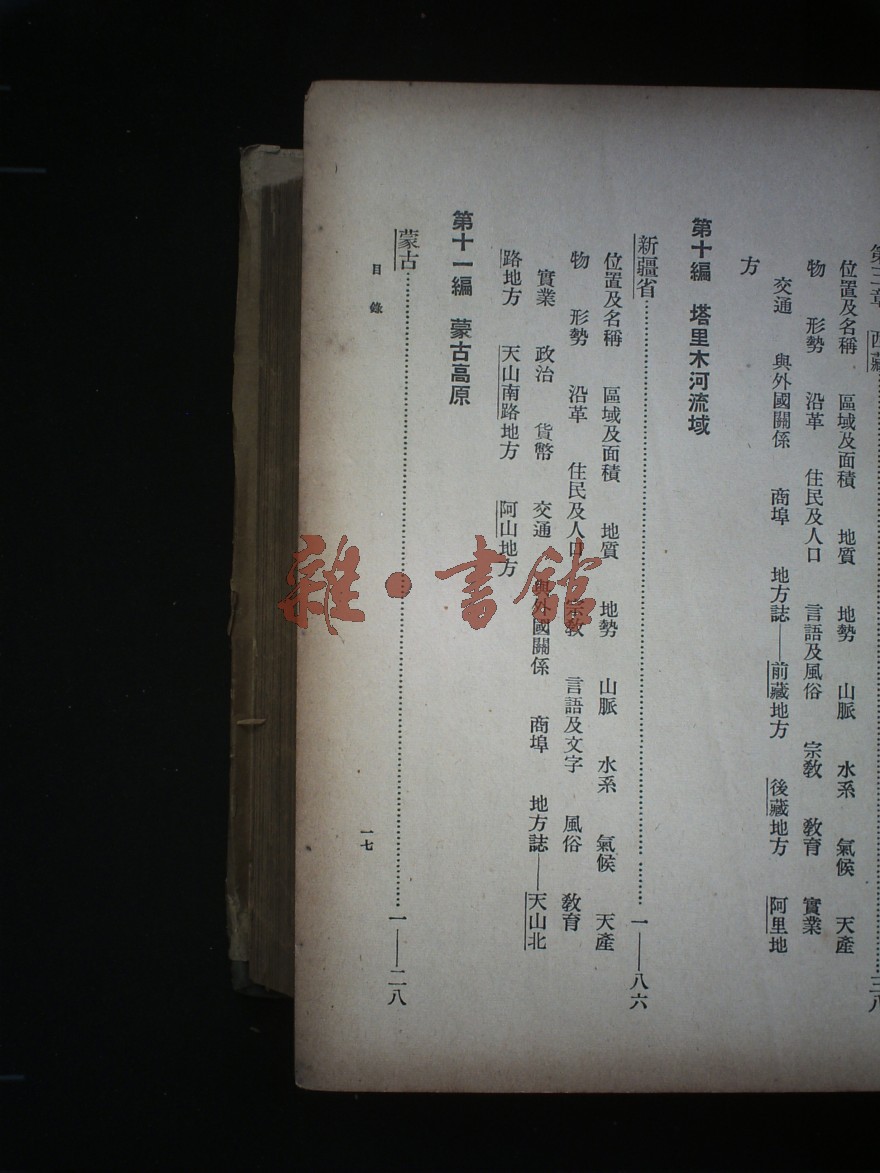 第三章 西藏……三八
位置及名稱 區域及面積 地質 地勢 山脈 水系 氣候 天產
物 形勢 沿革 住民及人口 言語及風俗 宗教 教育 實業
交通 與外國關係 商埠 地方誌——前藏地方 後藏地方 阿里地
方
第十編 塔里木河流域
新疆省……一——八六
位置及名稱 區域及面積 地質 地勢 山脈 水系 氣候 天產
物 形勢 沿革 住民及人口 宗教 言語及文字 風俗 教育
實業 政治 貨幣 交通 與外國關係 商埠 地方誌——天山北
路地方 天山南路地方 阿山地方
第十一編 蒙古高原
蒙古……一——二八
目錄 一七
雜·書館